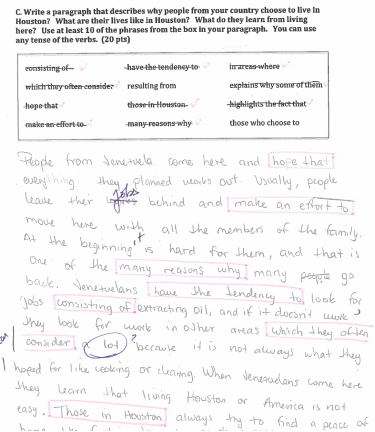 C. Write a paragraph that describes why people from your country choose to live in
Houston? What are their lives like in Houston? What do they learn from living
here? Use at least 10 of the phrases from the box in your paragraph. You can use
any tense of the verbs. (20 pts)
consisting of have the tendency to in areas where
which they often consider resulting from explains why some of them
hope that those in Houston highlights the fact that
make an effort to many reasons why those who choose to
People from Venezuela come here and hope that
everything they planned works out. Usually, people
jobs
leave their behind and make an effort to
move here with all the members of the family.
At the beginning it is hard for them, and that is
one of the many reasons why many people go
back. Venezuelans have the tendency to look for
jobs consisting of extracting oil, and if it doesn't work
they look for work in other areas which they often
consider a lot ? because it is not always what they
hoped for like cooking or cleaning. When Venezuelans come here
they learn that living Houston or America is not
easy. Those in Houston always try to find a peace of